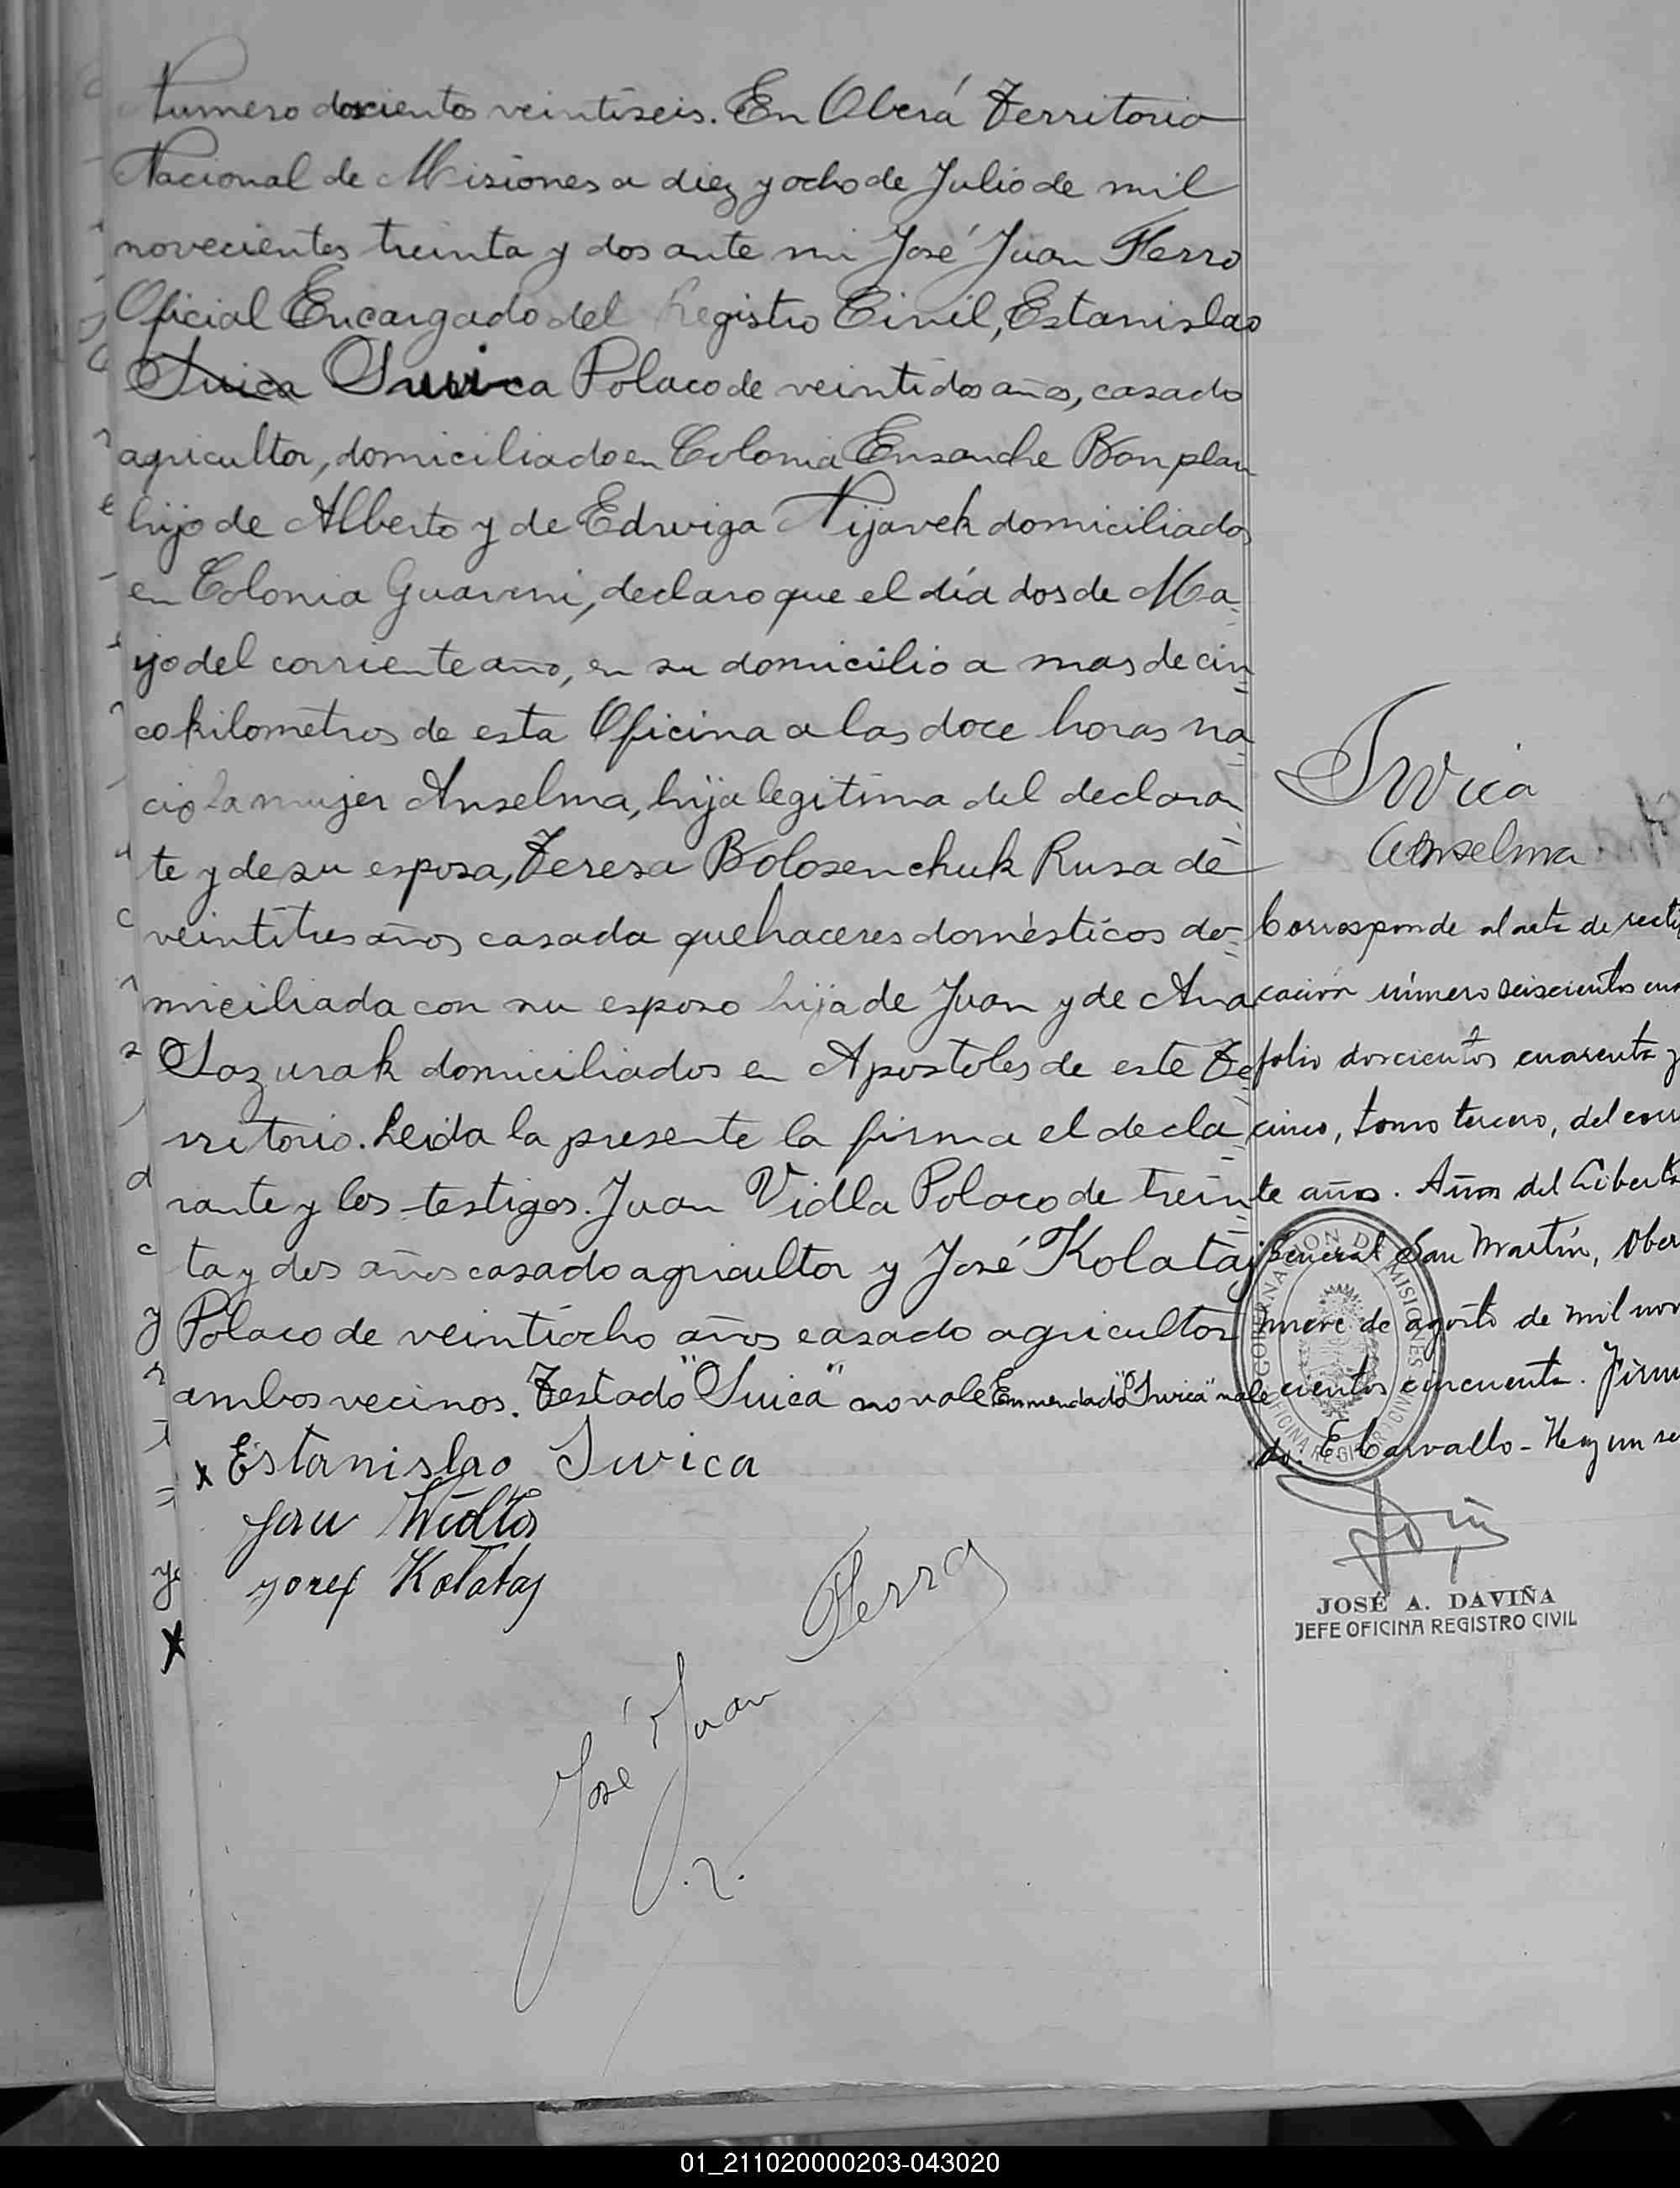 Numero doscientos veintiseis. En Oberá Territorio
Nacional de Misiones a diez y ocho de Julio de mil
novecientos treinta y dos ante mi José Juan Ferro
Oficial Encargado del Registro Civil, Estanislao
Suica Swica Polaco de veintidos años, casado
agricultor, domiciliado en Colonia Ensanche Bonplan
hijo de Alberto y de Edwiga Nijavek domiciliados
en Colonia Guarani, declaro que el día dos de Ma
yo del corriente año, en su domicilio a mas de cin
co kilometros de esta Oficina a las doce horas na
cio la mujer Anselma, hija legitima del declaran
te y de su esposa, Teresa Bolosenchuk Rusa de
veintitres años casada quehaceres domésticos do
miciliada con su esposo hija de Juan y de Ana
Sazurak domiciliados en Apostoles de este Te
rritorio. Leida la presente la firma el decla
rante y los testigos. Juan Vidla Polaco de trein
ta y dos años casado agricultor y José Kolataj
Polaco de veintiocho años casado agricultor
ambos vecinos. Testado "Suica" no vale Enmendado "Swica" vale
x Estanislao Swica
Jozef Kołataj
José Juan Ferro
Swica
Anselma
Corresponde al acta de rectifi
cación número seiscientos
folio doscientos cuarenta y
cinco, tomo tercero, del corr
te año. Años del Liberta
General San Martín, Ober
nueve de agosto de mil nov
cientos cincuenta. Firm
do. E Carvallo - Hay un se
GOBERNACION DE MISIONES
OFICINA REGISTRO CIVIL
JOSÉ A. DAVIÑA
JEFE OFICINA REGISTRO CIVIL
01_211020000203-043020